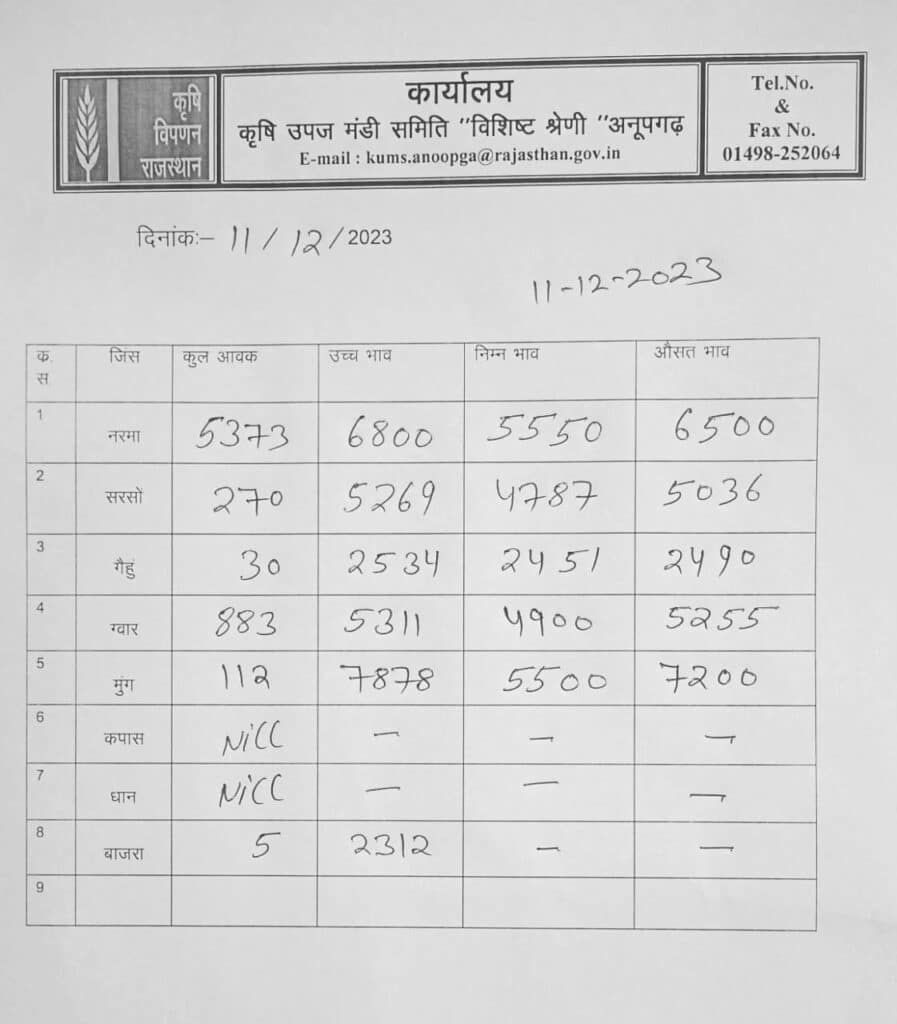 कृषि
विपणन
राजस्थान
कार्यालय
कृषि उपज मंडी समिति "विशिष्ट श्रेणी "अनूपगढ़
E-mail : kums.anoopga@rajasthan.gov.in
Tel.No.
&
Fax No.
01498-252064
दिनांकः– 11 / 12 / 2023
11-12-2023
क. स जिंस कुल आवक उच्च भाव निम्न भाव औसत भाव
1 नरमा 5373 6800 5550 6500
2 सरसों 270 5269 4787 5036
3 गैहुं 30 2534 2451 2490
4 ग्वार 883 5311 4900 5255
5 मुंग 112 7878 5500 7200
6 कपास NiCC — — —
7 धान NiCC — — —
8 बाजरा 5 2312 — —
9